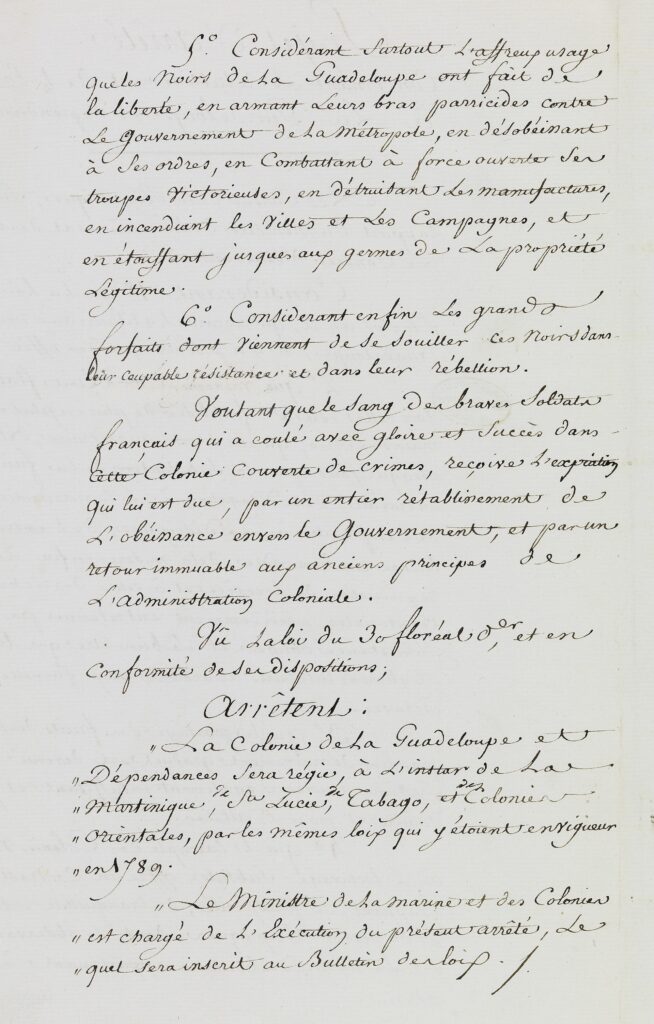 5.° Considérant surtout L'affreux usage
que les Noirs de La Guadeloupe ont fait de
la liberté, en armant Leurs bras parricides contre
Le Gouvernement de la Métropole, en désobéissant
à Ses ordres, en Combattant à force ouverte Ses
troupes Victorieuses, en détruisant Les manufactures,
en incendiant les Villes et Les Campagnes, et
en étouffant jusques aux germes de La propriété
Légitime.
6.° Considerant enfin Les grands
forfaits dont Viennent de se souiller ces Noirs dans
leur coupable résistance et dans leur rébellion.
Voulant que le sang des braves Soldats
français qui a coulé avec gloire et Succès dans
cette Colonie Couverte de crimes, reçoive L'expiation
qui lui est due, par un entier rétablissement de
L'obéissance envers le Gouvernement, et par un
retour immuable aux anciens principes de
L'administration Coloniale.
Vû La loi du 30 floréal d.er, et en
Conformité de ses dispositions;
Arrêtent:
„ La Colonie de la Guadeloupe et
„ Dépendances sera régie, à L'instar de La
„ Martinique, de Ste Lucie, de Tabago, et des Colonies
„ Orientales, par les mêmes loix qui y étoient en vigueur
„ en 1789.
„ Le Ministre de la marine et des Colonies
„ est chargé de L'Exécution du présent arrêté, Le
„ quel sera inscrit au Bulletin des loix. /